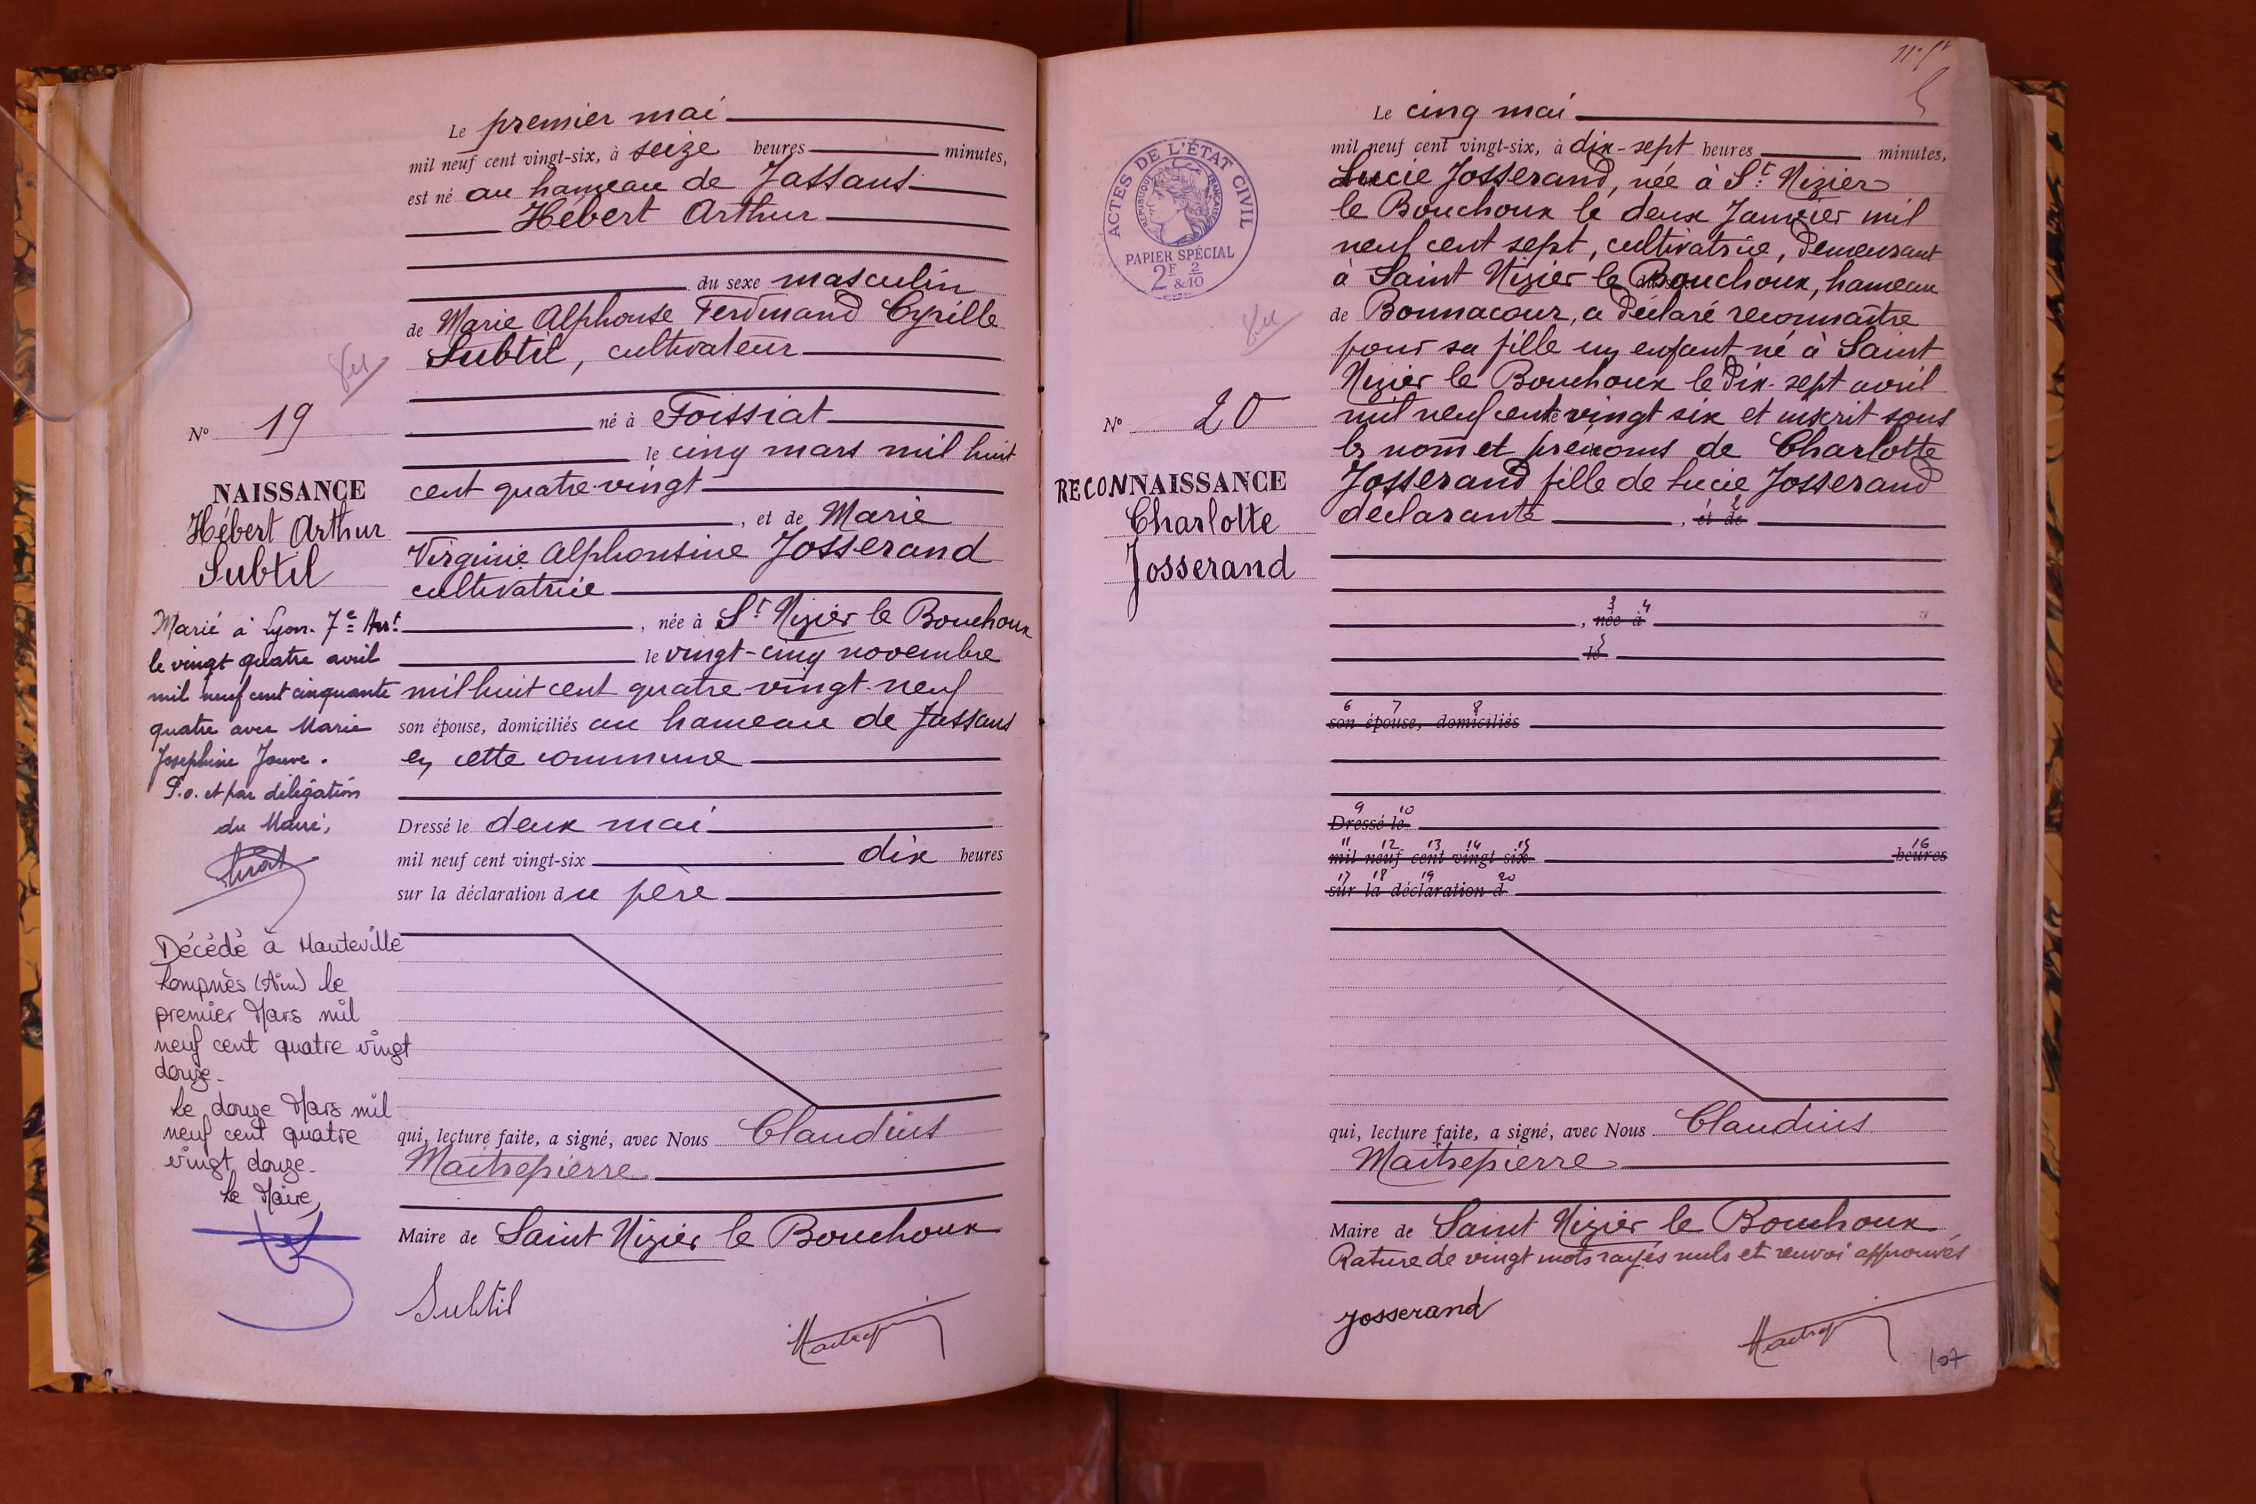 Le premier mai
mil neuf cent vingt-six, à seize heures minutes,
est né au hameau de Jassans
Hébert Arthur
du sexe masculin
de Marie Alphonse Ferdinand Cyrille
Subtil, cultivateur
né à Foissiat
le cinq mars mil huit
cent quatre-vingt
, et de Marie
Virginie Alphonsine Josserand
cultivatrice
, née à St Nizier le Bouchoux
le vingt-cinq novembre
mil huit cent quatre-vingt-neuf
son épouse, domiciliés au hameau de Jassans
en cette commune
Dressé le deux mai
mil neuf cent vingt-six dix heures
sur la déclaration du père
qui, lecture faite, a signé, avec Nous Claudius
Maitrepierre
Maire de Saint Nizier le Bouchoux
Subtil
N° 19
NAISSANCE
Hébert Arthur
Subtil
Marié à Lyon. 7e Arrt
le vingt quatre avril
mil neuf cent cinquante
quatre avec Marie
Josephine Jouve.
P.o. et par délégation
du Maire,
Décédé à Hauteville
Lompnès (Ain) le
premier Mars mil
neuf cent quatre vingt
douze.
Le douze Mars mil
neuf cent quatre
vingt douze.
Le Maire,
Le cinq mai
mil neuf cent vingt-six, à dix-sept heures minutes,
Lucie Josserand, née à St Nizier
le Bouchoux le deux Janvier mil
neuf cent sept, cultivatrice, demeurant
à Saint Nizier le Bouchoux, hameau
de Bonnacour, a déclaré reconnaître
pour sa fille un enfant né à Saint
Nizier le Bouchoux le dix-sept avril
mil neuf cent vingt six et inscrit sous
les nom et prénoms de Charlotte
Josserand fille de Lucie Josserand
déclarante , et de
3 4
, née à
5
le
6 7 8
son épouse, domiciliés
9 10
Dressé le
11 12 13 14 15 16
mil neuf cent vingt-six heures
17 18 19 20
sur la déclaration d
qui, lecture faite, a signé, avec Nous Claudius
Maitrepierre
Maire de Saint Nizier le Bouchoux
Rature de vingt mots rayés nuls et renvoi approuvés
Josserand
107
ACTES DE L'ÉTAT CIVIL
RÉPUBLIQUE FRANÇAISE
PAPIER SPÉCIAL
2F 2
&10
N° 20
RECONNAISSANCE
Charlotte
Josserand